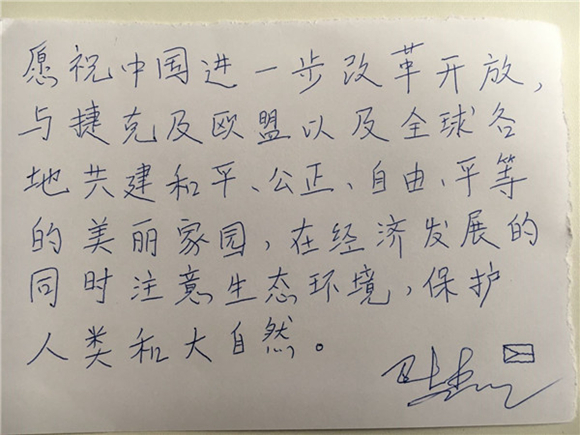 愿祝中国进一步改革开放，
与捷克及欧盟以及全球各
地共建和平、公正、自由、平等
的美丽家园，在经济发展的
同时注意生态环境，保护
人类和大自然。